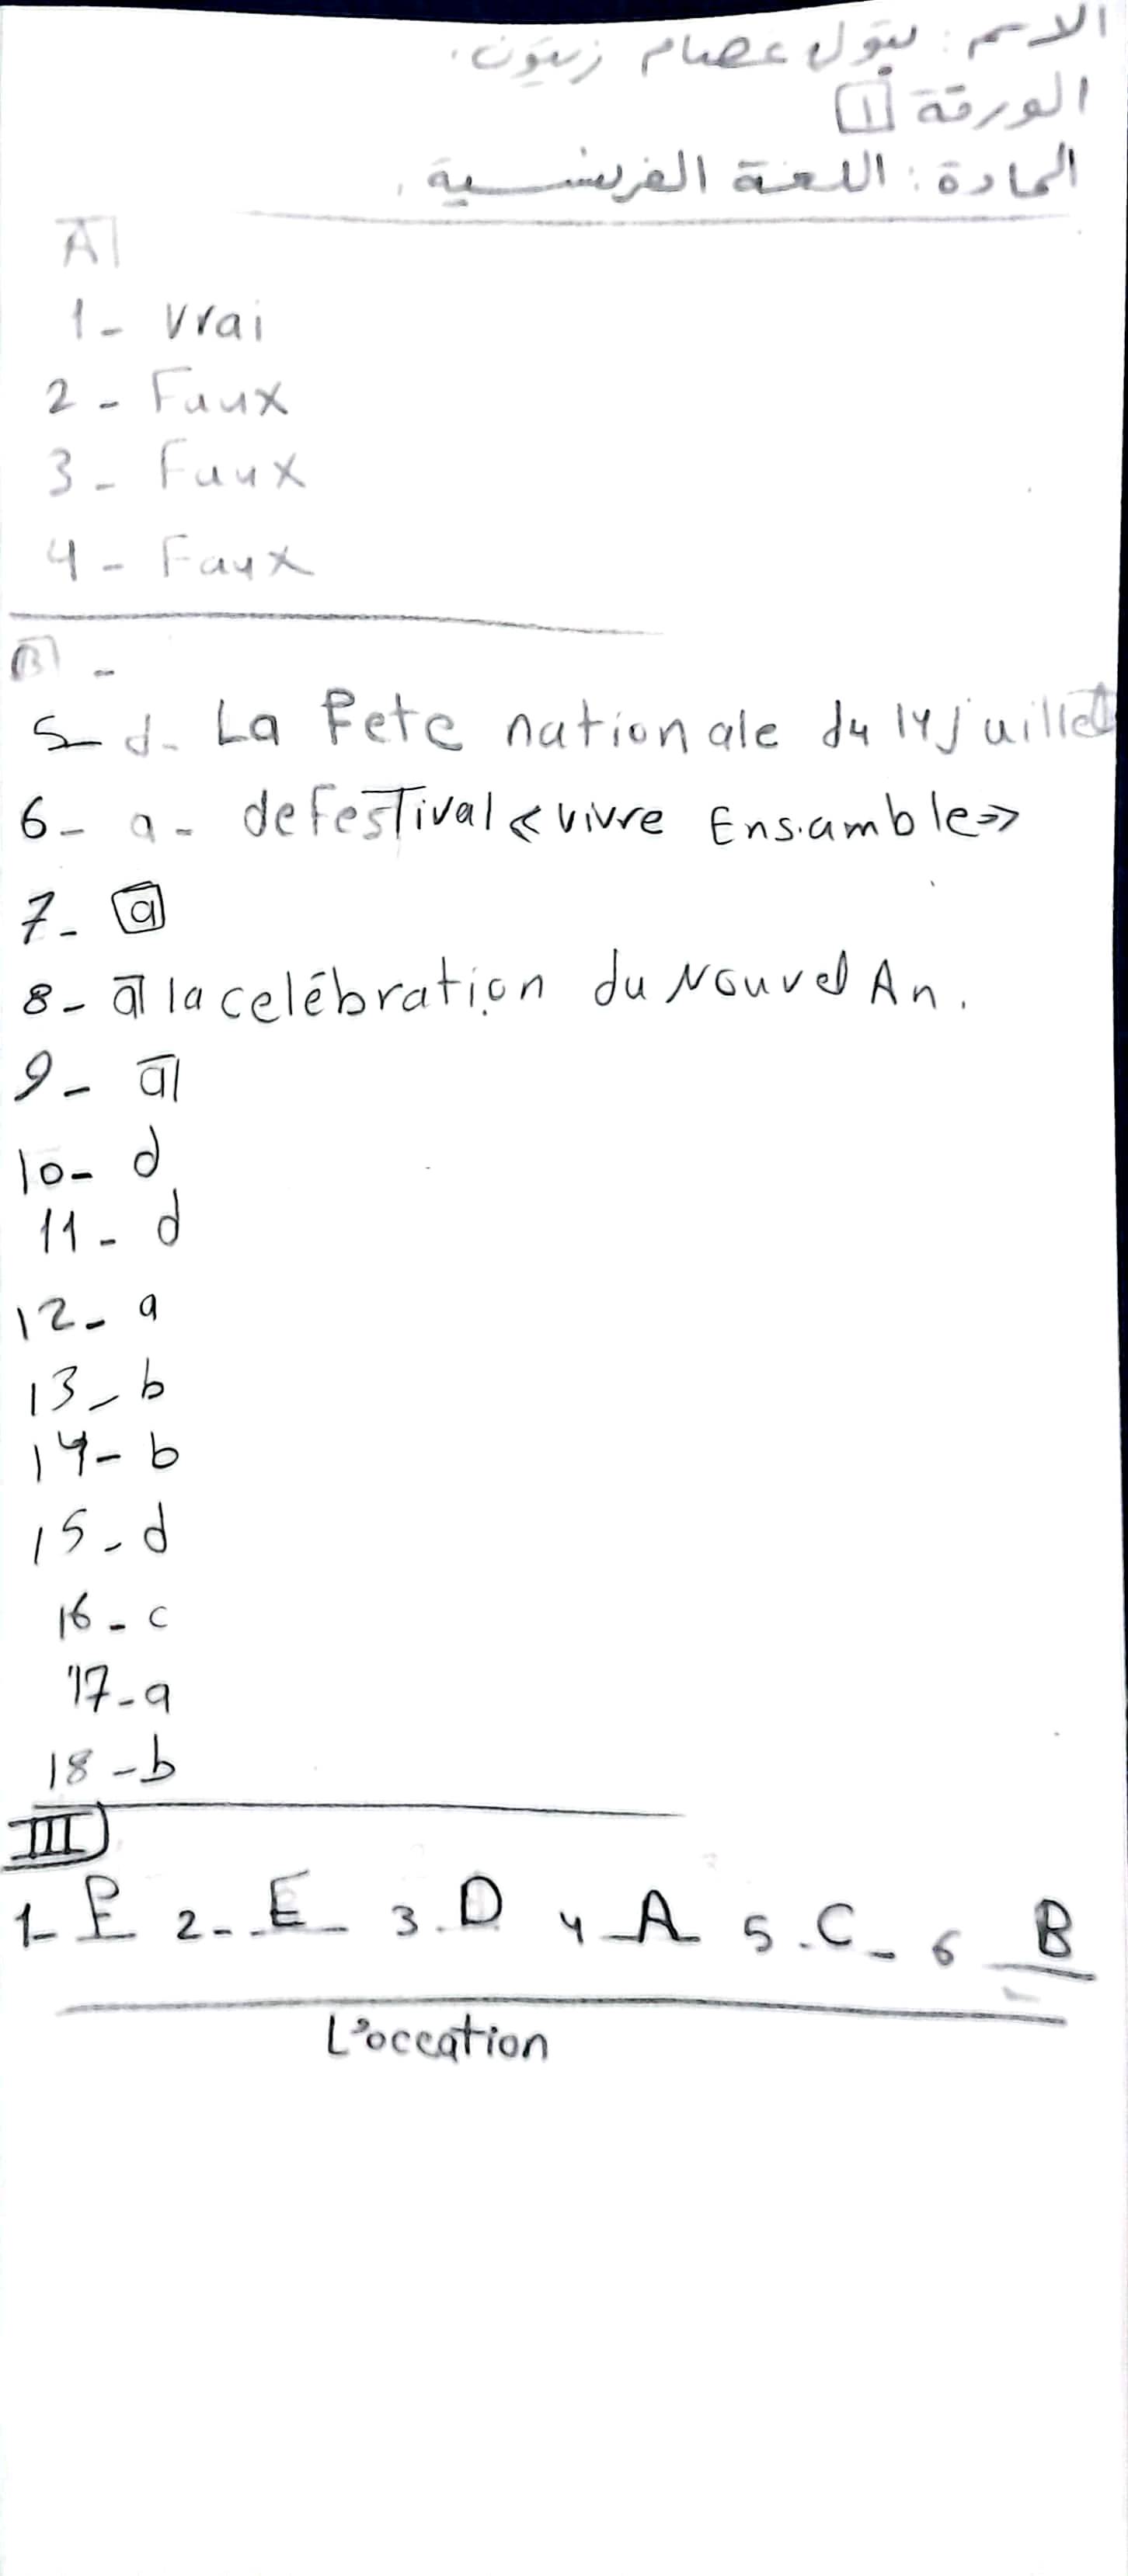 الاسم: بتول عصام زيتون.
الورقة 1
المادة: اللغة الفرنسية.
A
1- Vrai
2- Faux
3- Faux
4- Faux
B -
5- d- La Fete nationale du 14 juillet
6- a- de Festival « vivre Ensamble »
7- a
8- a la celébration du Nouvel An.
9- a
10- d
11- d
12- a
13- b
14- b
15- d
16- c
17- a
18- b
III
1- F 2- E 3. D 4 A 5. C 6 B
L'occation